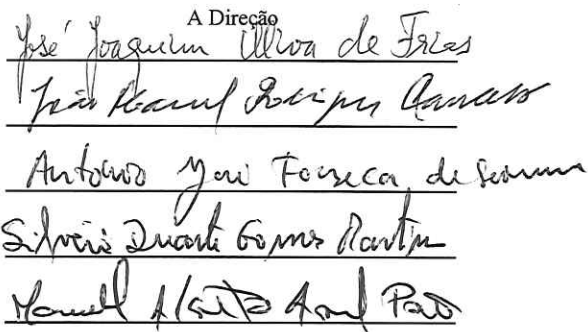 A Direção
José Joaquim Silva de Frias
João Manuel Rodrigues
António José Fonseca de
Silvério Duarte Gomes Martins
Manuel Alberto Pato